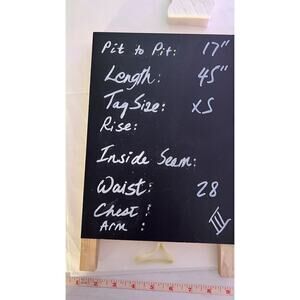 Pit to Pit: 17"
Length: 45"
Tag Size: XS
Rise:
Inside Seam:
Waist: 28
Chest:
Arm: III